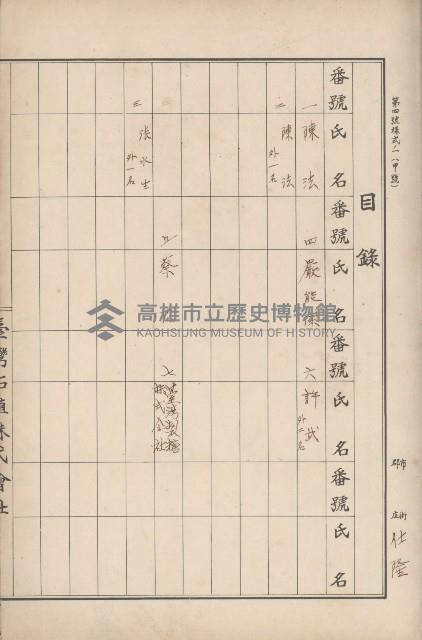 第四號樣式ノ一(甲號)
市
郡
街
庄
仕隆
目錄
番號 氏名 番號 氏名 番號 氏名 番號 氏名
一 陳法
四 嚴能
六 許武
外二名
二 陳法
外一名
五 蔡
七 臺灣製糖
株式会社
三 張水生
外一名
臺灣拓殖株式會社
高雄市立歷史博物館
KAOHSIUNG MUSEUM OF HISTORY